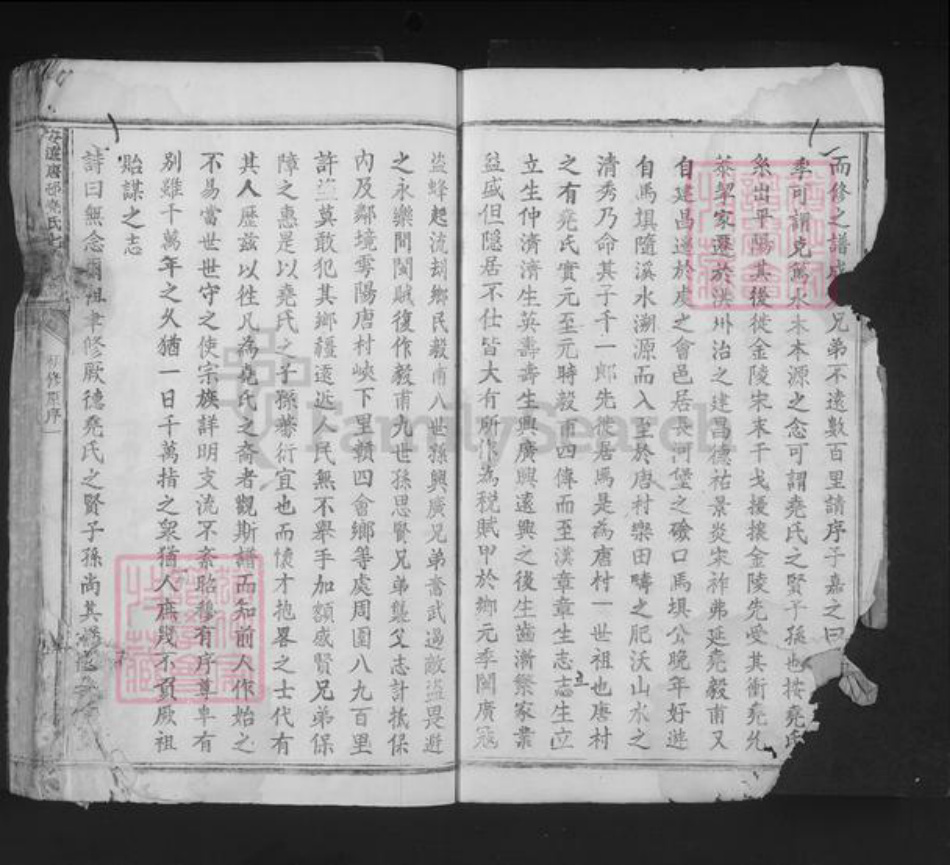 而修之譜兄弟不遠數百里請序子嘉之曰
季可謂克篤水木本源之念可謂堯氏之賢子孫也按堯氏
系出平陽其後徙金陵宋末干戈擾攘金陵先受其衝堯允
恭挈家遷於洪州治之建昌德祐景炎宋祚弗延堯毅甫又
自建昌遷於虔之會邑居長河堡之礆口馬埧公晚年好遊
自馬埧隨溪水溯源而入至於唐村樂田疇之肥沃山水之
清秀乃命其子千一郎先徙居焉是為唐村一世祖也唐村
之有堯氏實元至元時毅甫四傳而至漢章章生志志生立
立生仲濟濟生英壽壽生興廣興遠興之後生齒漸繁家業
益盛但隱居不仕皆大有所作為稅賦甲於鄉元季閩廣寇
盜蜂起流刧鄉民毅甫八世孫興廣兄弟奮武過敵盜畏避
之永樂間閩賊復作毅甫九世孫思賢兄弟襲父志計抵保
內及鄰境雩陽唐村峽下里額四會鄉等處周圍八九百里
許盜莫敢犯其鄉疆遠近人民無不舉手加額感賢兄弟保
障之惠是以堯氏之子孫蕃衍宜也而懷才抱畧之士代有
其人歷茲以徃凡為堯氏之裔者觀斯譜而知前人作始之
不易當世世守之使宗族詳明支流不紊昭穆有序尊卑有
別雖千萬年之久猶一日千萬指之衆猶人庶幾不負厥祖
貽謀之志
詩曰無念爾祖聿修厥德堯氏之賢子孫尚其
安遠唐邨堯氏七
修原序
FamilySearch